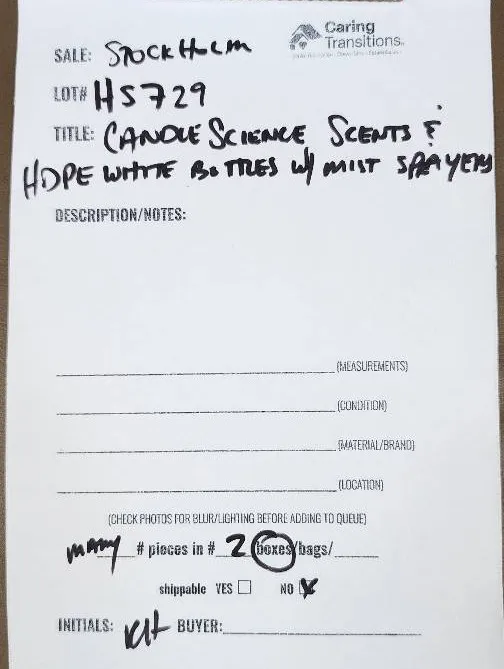 Caring
Transitions®
SALE: STOCKHOLM
LOT# HS729
TITLE: CANDLE SCIENCE SCENTS &
HDPE WHITE BOTTLES W/ MIST SPRAYERS
DESCRIPTION/NOTES:
(MEASUREMENTS)
(CONDITION)
(MATERIAL/BRAND)
(LOCATION)
(CHECK PHOTOS FOR BLUR/LIGHTING BEFORE ADDING TO QUEUE)
many # pieces in # 2 boxes/bags/
shippable YES NO X
INITIALS: KH BUYER: